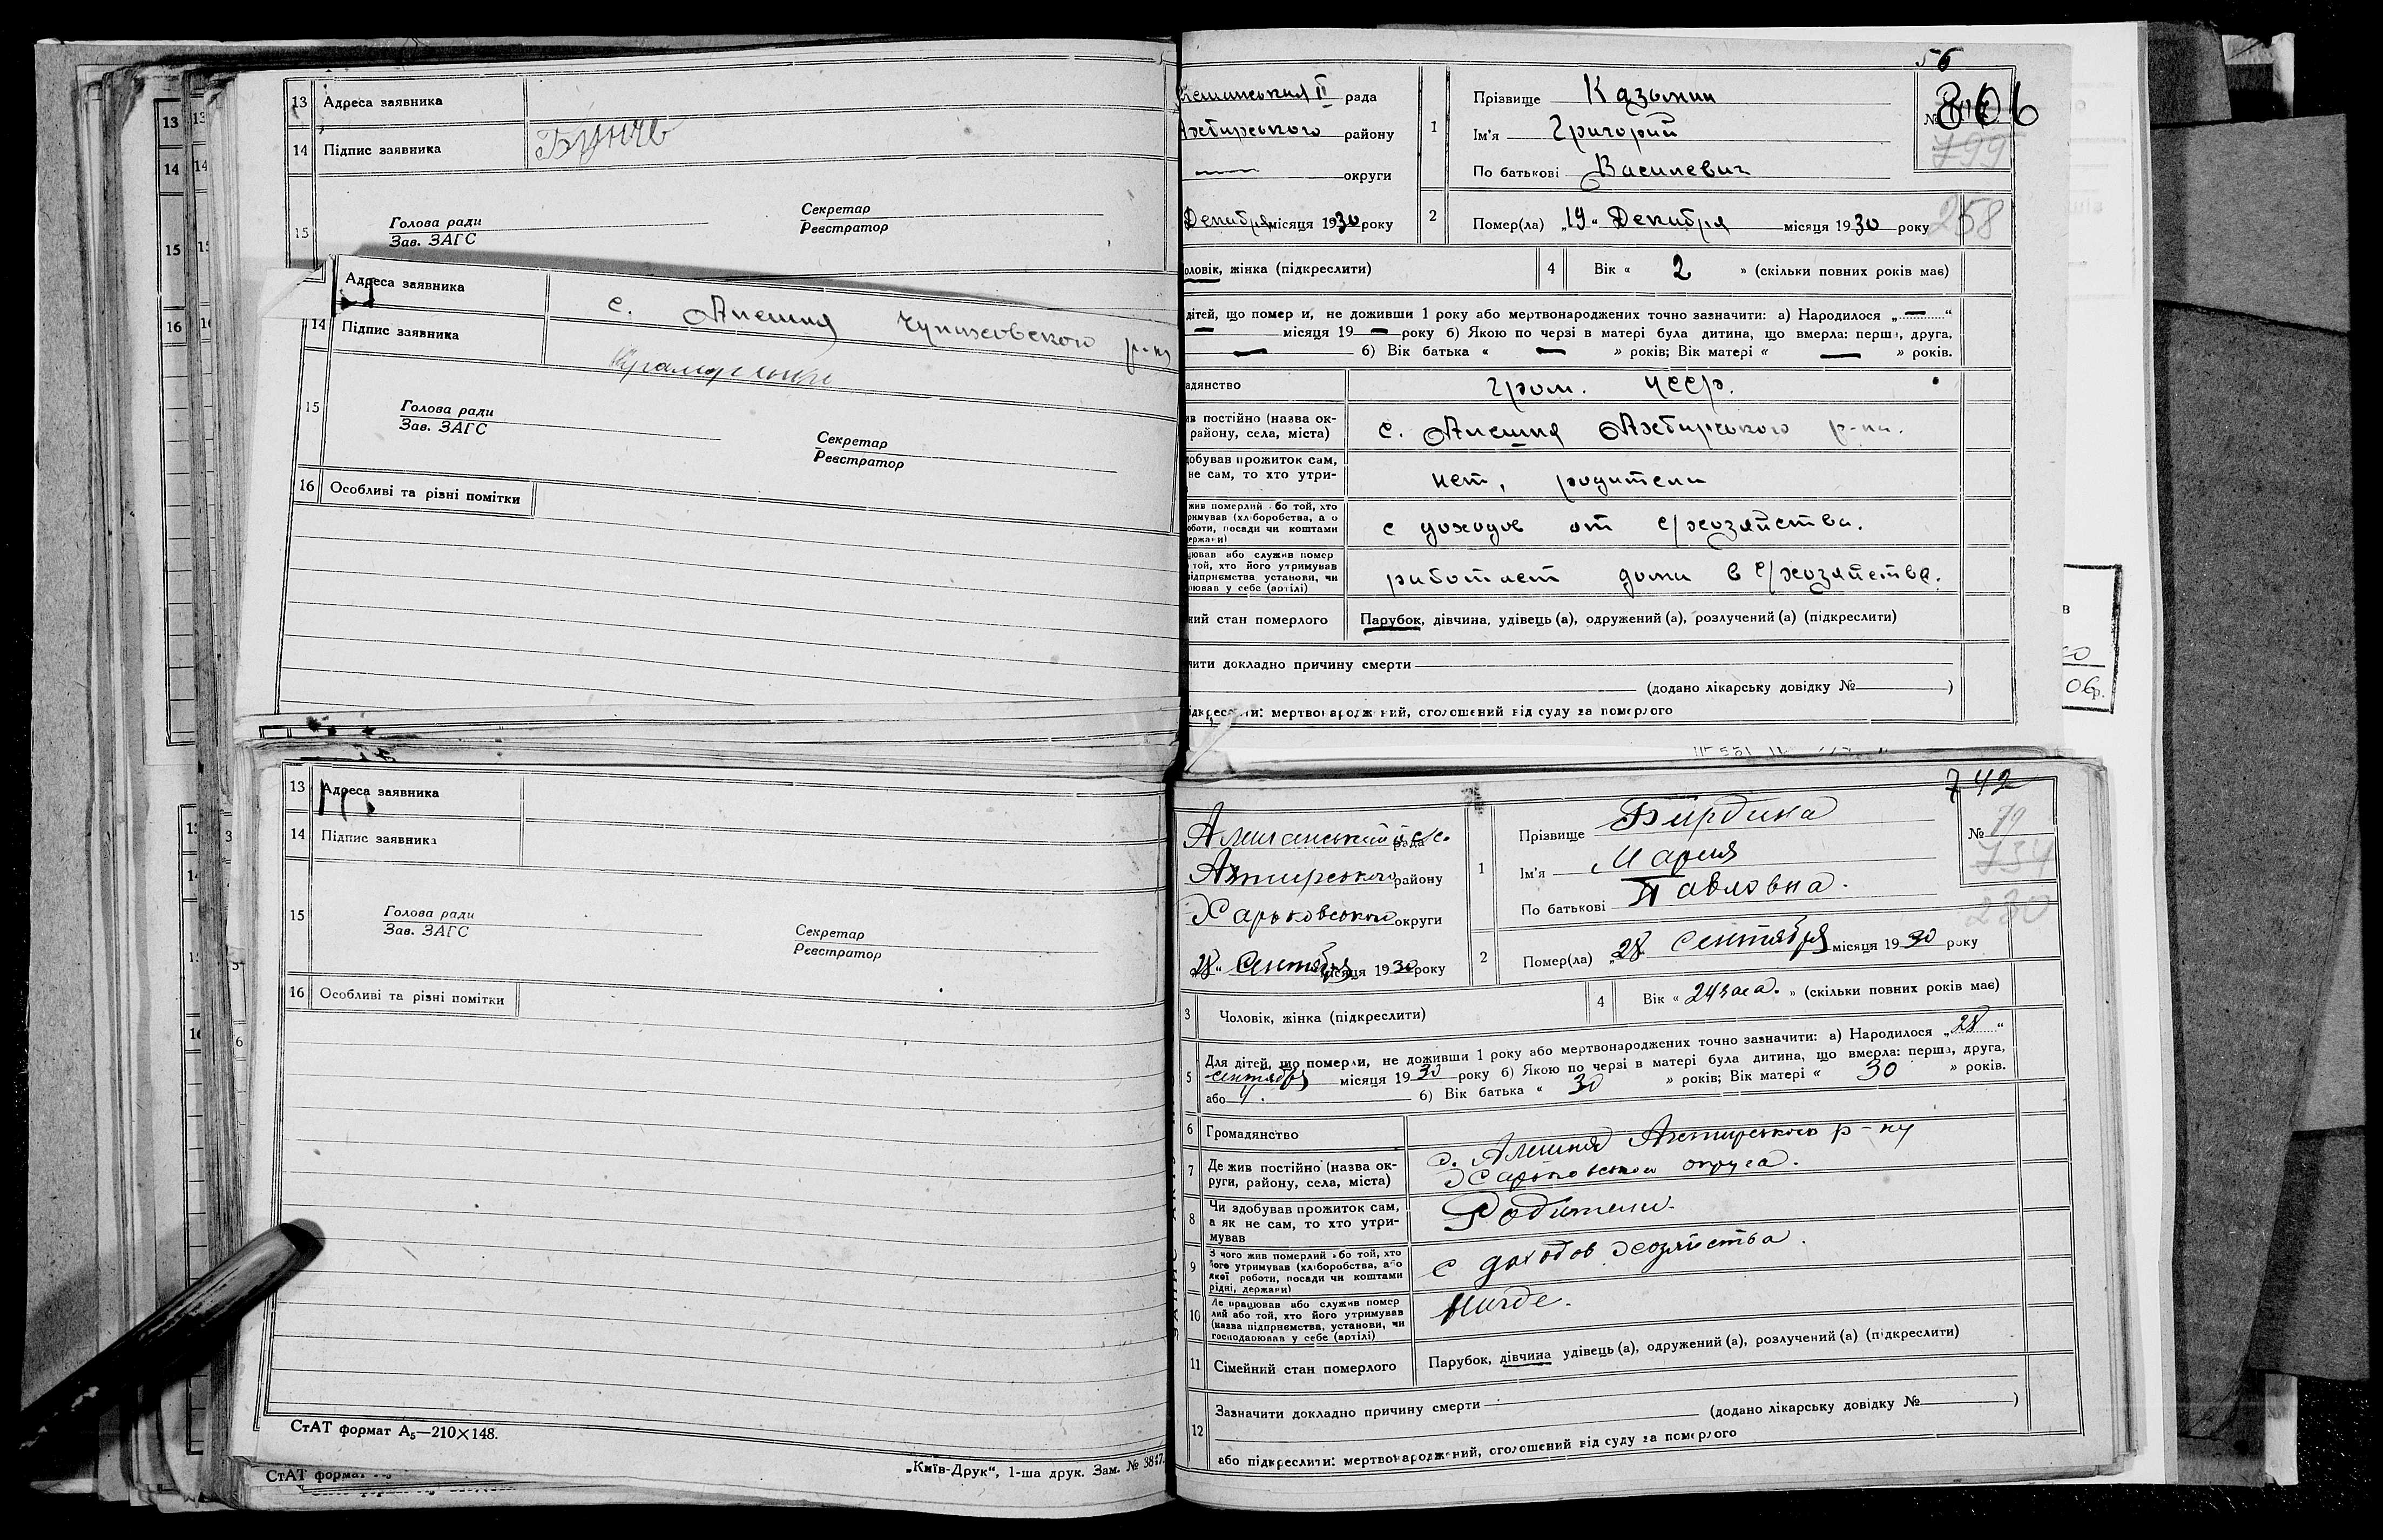 13 Адреса заявника
14 Підпис заявника Бунчь
15 Голова ради Секретар
Зав. ЗАГС Реєстратор
Адреса заявника с. Алешня Чупаховского р-на
14 Підпис заявника
15 Голова ради Секретар
Зав. ЗАГС Реєстратор
16 Особливі та різні помітки
13 Адреса заявника
14 Підпис заявника
15 Голова ради Секретар
Зав. ЗАГС Реєстратор
16 Особливі та різні помітки
СтАТ формат А5—210×148.
СтАТ формат
„Київ-Друк“, 1-ша друк. Зам. № 3847.
56
рада
1 Прізвище Казьмин
№ 806
799
Ахтирського району
Ім'я Григорий
округи
По батькові Василевич
Декабря місяця 1930 року
2 Помер(ла) „19“ Декабря місяця 1930 року
258
жінка (підкреслити)
4 Вік « 2 » (скільки повних років має)
дітей, що померли, не доживши 1 року або мертвонароджених точно зазначити: а) Народилося „—“
— місяця 19— року б) Якою по черзі в матері була дитина, що вмерла: перша, друга,
— 6) Вік батька « — » років; Вік матері « — » років.
гром. УССР.
постійно (назва ок-
району, села, міста) с. Алешня Ахтирського р-на.
прожиток сам,
не сам, то хто утри- нет, родители
жив померлий або той, хто
с доходов от с/хозяйства.
або служив помер
той, хто його утримував
работает дома в с/хозяйстве.
стан померлого Парубок, дівчина, удівець (а), одружений (а), розлучений (а) (підкреслити)
докладно причину смерти
(додано лікарську довідку № )
мертвонароджений, оголошений від суду за померлого
742
Алешанський рада
1 Прізвище Бирдина
№ 79
734
Ахтирського району
Ім'я Мария
Харьковського округи
По батькові Павловна.
230
„28“ Сентября місяця 1930 року
2 Помер(ла) „28“ Сентября місяця 1930 року
3 Чоловік, жінка (підкреслити)
4 Вік « 24 часа. » (скільки повних років має)
5 Для дітей, що померли, не доживши 1 року або мертвонароджених точно зазначити: а) Народилося „28“
сентября місяця 1930 року б) Якою по черзі в матері була дитина, що вмерла: перша, друга,
або 4. 6) Вік батька « 30 » років; Вік матері « 30 » років.
6 Громадянство
7 Де жив постійно (назва ок-
руги, району, села, міста)
с. Алешня Ахтирського р-ну
Харьковськой округа.
8 Чи здобував прожиток сам,
а як не сам, то хто утри-
мував
Родители.
9 З чого жив померлий або той, хто
його утримував (хліборобства, або
якої роботи, посади чи коштами
рідні, держави)
с доходов хозяйства.
10 Де працював або служив помер
лий або той, хто його утримував
(назва підприємства, установи, чи
господарював у себе (артілі)
Нигде.
11 Сімейний стан померлого Парубок, дівчина удівець (а), одружений (а), розлучений (а) (підкреслити)
12 Зазначити докладно причину смерти
(додано лікарську довідку № )
або підкреслити: мертвонароджений, оголошений від суду за померлого